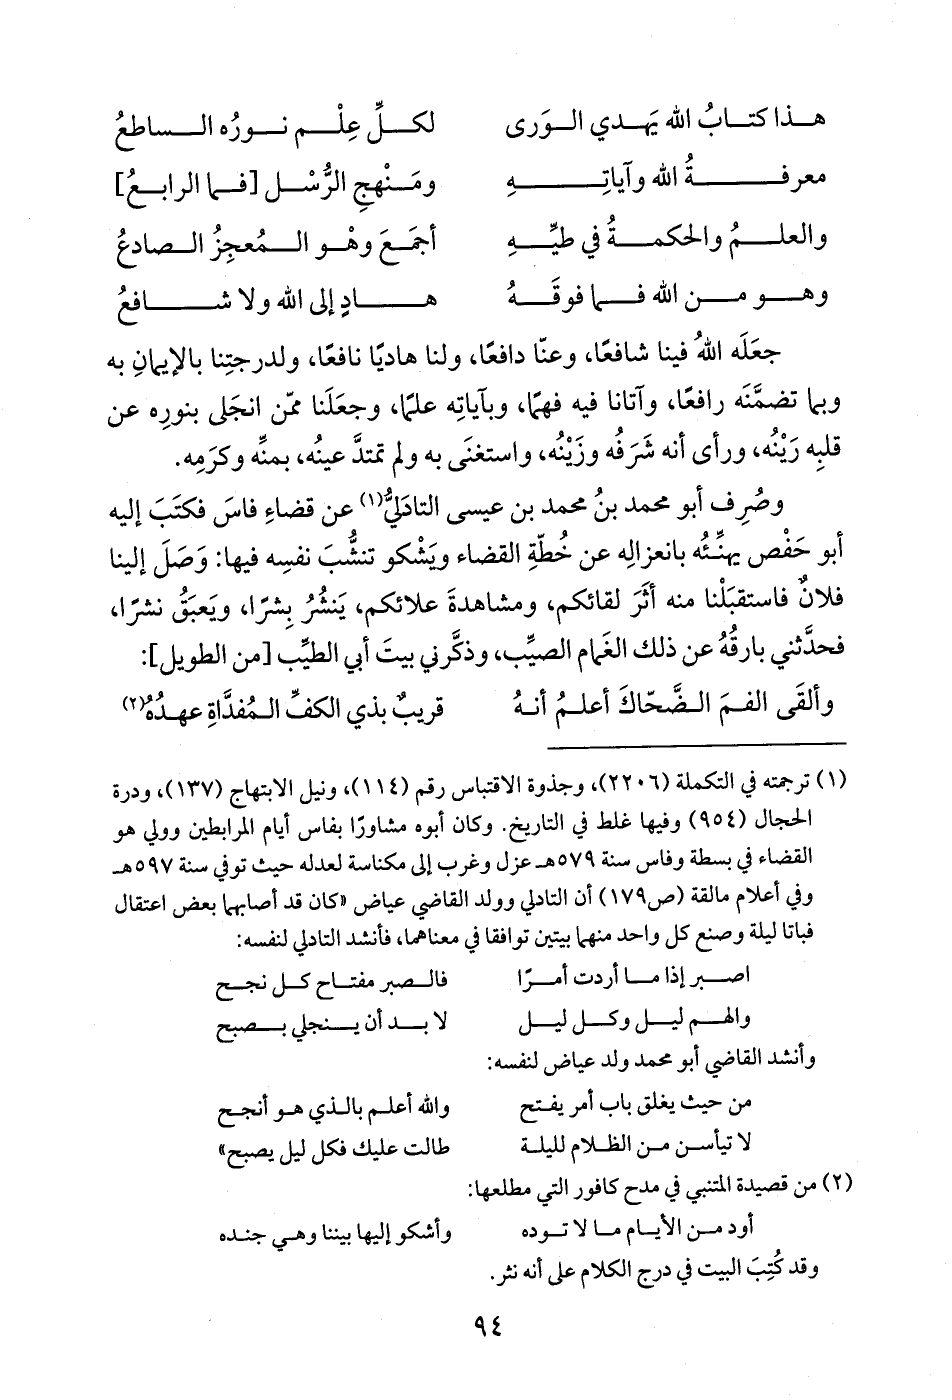 هـذا كتـابُ الله يَهـدي الـوَرى لكـلِّ عِلْـم نـورُه الـساطعُ
معرفـةُ الله وآياتِـهِ ومَـنْهجِ الرُّسْـل [فـما الرابـعُ]
والعلـمُ والحكمـةُ في طيِّـهِ أجمَـعَ وهْـو الـمُعجِزُ الـصادعُ
وهـو مـن الله فـما فوقَـهُ هـادٍ إلى الله ولا شـافعُ
جعَلَه اللهُ فينا شافعًا، وعنّا دافعًا، ولنا هاديًا نافعًا، ولدرجتِنا بالإيمانِ به
وبما تضمَّنَه رافعًا، وآتانا فيه فهمًا، وبآياتِه علمًا، وجعَلَنا ممّن انجَلى بنورِه عن
قلبِه رَيْنُه، ورأى أنه شَرَفُه وزَيْنُه، واستغنَى به ولم تمتدَّ عينُه، بمنِّه وكرَمِه.
وصُرِف أبو محمد بنُ محمد بن عيسى التادَليُّ(١) عن قضاءِ فاسَ فكتَبَ إليه
أبو حَفْص يهنِّئُه بانعزالِه عن خُطّةِ القضاء ويَشْكو تنشُّبَ نفسِه فيها: وَصَل إلينا
فلانٌ فاستقبَلْنا منه أثَرَ لقائكم، ومشاهدةَ علائكم، يَنشُرُ بِشرًا، ويَعبَقُ نشرًا،
فحدَّثني بارقُهُ عن ذلك الغَمام الصيِّب، وذكَّرني بيتَ أبي الطيِّب [من الطويل]:
وألقَى الفـمَ الـضَّحّاكَ أعلـمُ أنـهُ قريبٌ بذي الكفِّ الـمُفدّاةِ عهـدُهُ(٢)
(١) ترجمته في التكملة (٢٢٠٦)، وجذوة الاقتباس رقم (١١٤)، ونيل الابتهاج (١٣٧)، ودرة
الحجال (٩٥٤) وفيها غلط في التاريخ. وكان أبوه مشاورًا بفاس أيام المرابطين وولي هو
القضاء في بسطة وفاس سنة ٥٧٩هـ عزل وغرب إلى مكناسة لعدله حيث توفي سنة ٥٩٧هـ
وفي أعلام مالقة (ص١٧٩) أن التادلي وولد القاضي عياض «كان قد أصابهما بعض اعتقال
فباتا ليلة وصنع كل واحد منهما بيتين توافقا في معناهما، فأنشد التادلي لنفسه:
اصـبر إذا مـا أردت أمـرًا فالـصبر مفتـاح كـل نجـح
والهـم ليـل وكـل ليـل لا بـد أن يـنجلي بـصبح
وأنشد القاضي أبو محمد ولد عياض لنفسه:
من حيث يغلق باب أمر يفـتح والله أعلـم بالـذي هـو أنجـح
لا تيأسـن مـن الظـلام لليلـة طالت عليك فكل ليل يصبح»
(٢) من قصيدة المتنبي في مدح كافور التي مطلعها:
أود مـن الأيـام مـا لا تـوده وأشكو إليها بيننا وهـي جنـده
وقد كُتِبَ البيت في درج الكلام على أنه نثر.
٩٤